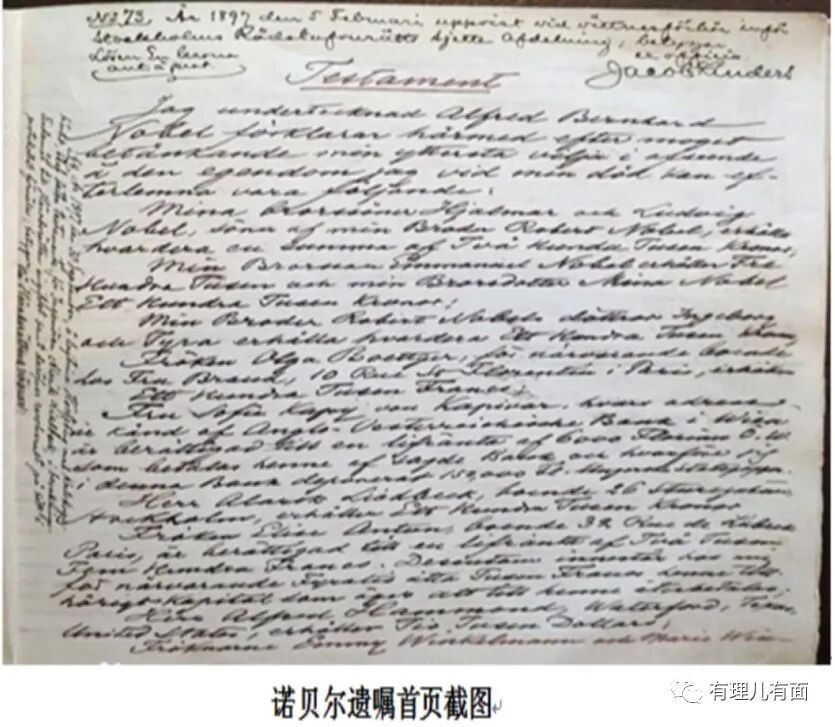 No 73. År 1897 den 5 Februari uppvist vid vittnesförhör inför
Stockholms Rådstufvurätts sjette Afdelning, betygar
Lösen En krona
ex officio
Testament
Jag undertecknad Alfred Bernhard
Nobel förklarar härmed efter moget
betänkande min yttersta vilja i afseende
å den egendom jag vid min död kan ef-
terlemna vara följande:
Mina Brorsöner Hjalmar och Ludvig
Nobel, söner af min Broder Robert Nobel, erhålla
hvardera en Summa af Två Hundra Tusen Kronor,
Min Brorson Emmanuel Nobel erhåller Tre
Hundra Tusen och min Brorsdotter Mina Nobel
Ett Hundra Tusen Kronor;
Min Broder Robert Nobels döttrar Ingeborg
och Tyra erhålla hvardera Ett Hundra Tusen Kronor
Fröken Olga Boettger, för närvarande boende
hos Fru Brand, 10 Rue St Florentin i Paris, erhåller
Ett Hundra Tusen Francs;
Fru Sofie Kapy von Kapivar, hvars adress
är känd af Anglo-Oesterreichische Bank i Wien
är berättigad till en lifränta af 6000 Florins Ö.W.
som betalas henne af sagde Bank och hvarför jag
i denna Bank deponerat 150,000 Fl. i Ungerska Statspapper.
Herr Alarik Liedbeck, boende 26 Sturegatan,
Stockholm, erhåller Ett Hundra Tusen Kronor
Fröken Elise Antun, boende 32 Rue de Lubeck
Paris, är berättigad till en lifränta af Två Tusen
Fem Hundra Francs. Desutom innestår hos mig
för närvarande Fyratio åtta Tusen Francs henne till-
hörigt Kapital som äger att till henne återbetalas;
Herr Alfred Hammond, Waterford, Texas,
United States, erhåller Tio Tusen Dollars;
Fröknarne Emmy Winkelmann och Marie Win
诺贝尔遗嘱首页截图
有理儿有面